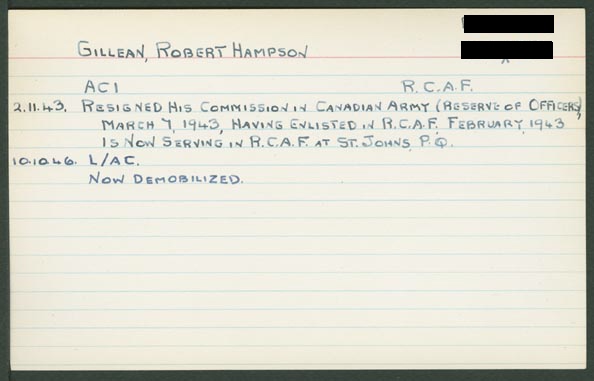 GILLEAN, ROBERT HAMPSON
AC1 R.C.A.F.
2.11.43. RESIGNED HIS COMMISSION IN CANADIAN ARMY (RESERVE OF OFFICERS)
MARCH 7, 1943, HAVING ENLISTED IN R.C.A.F. FEBRUARY, 1943
IS NOW SERVING IN R.C.A.F. AT ST. JOHNS, P.Q.
10.10.46. L/AC.
NOW DEMOBILIZED.